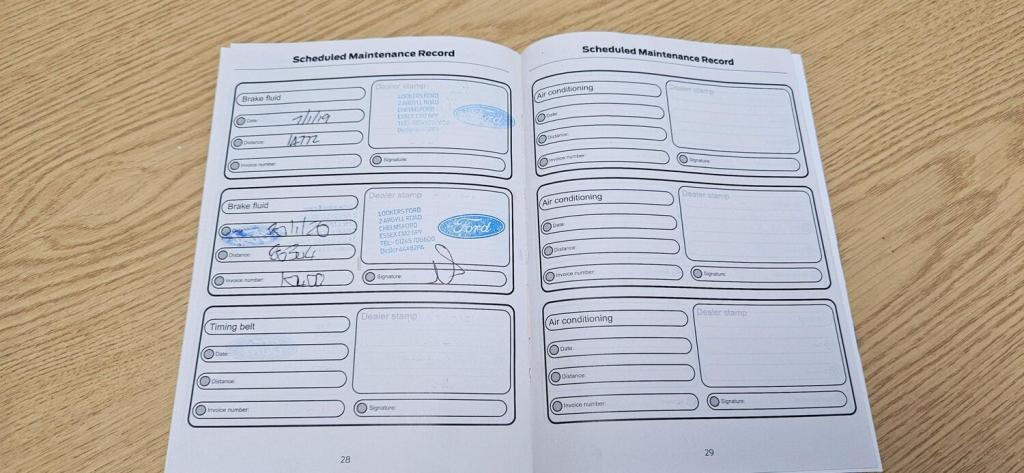 Scheduled Maintenance Record
Brake fluid
Dealer stamp
Date: 7/1/19
Distance:
Invoice number:
LOOKERS FORD
2 ARGYLL ROAD
CHELMSFORD
ESSEX CM2 6PY
Ford
Signature:
Brake fluid
Dealer stamp
/1/20
Distance:
Invoice number:
LOOKERS FORD
2 ARGYLL ROAD
CHELMSFORD
ESSEX CM2 6PY
TEL:- 01245 706600
Dealer 44482PA
Ford
Signature:
Timing belt
Dealer stamp
Date:
Distance:
Invoice number:
Signature:
28
Scheduled Maintenance Record
Air conditioning
Dealer stamp
Date:
Distance:
Invoice number:
Signature:
Air conditioning
Dealer stamp
Date:
Distance:
Invoice number:
Signature:
Air conditioning
Dealer stamp
Date:
Distance:
Invoice number:
Signature:
29